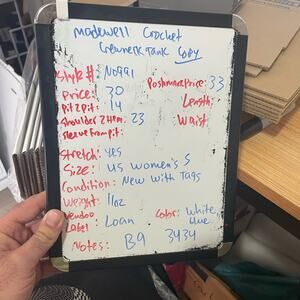 Madewell Crochet
Crewneck Tank Copy
Style #: NO991
Poshmark Price: 33
Price: 30
Length:
Pit 2 Pit: 14
Waist:
Shoulder 2 Hem: 23
Sleeve from pit:
Stretch: yes
Size: US Women's S
Condition: New With Tags
Weight: 11oz
Vendoo Label: Loan
Color: White, blue
Notes: B9 3434